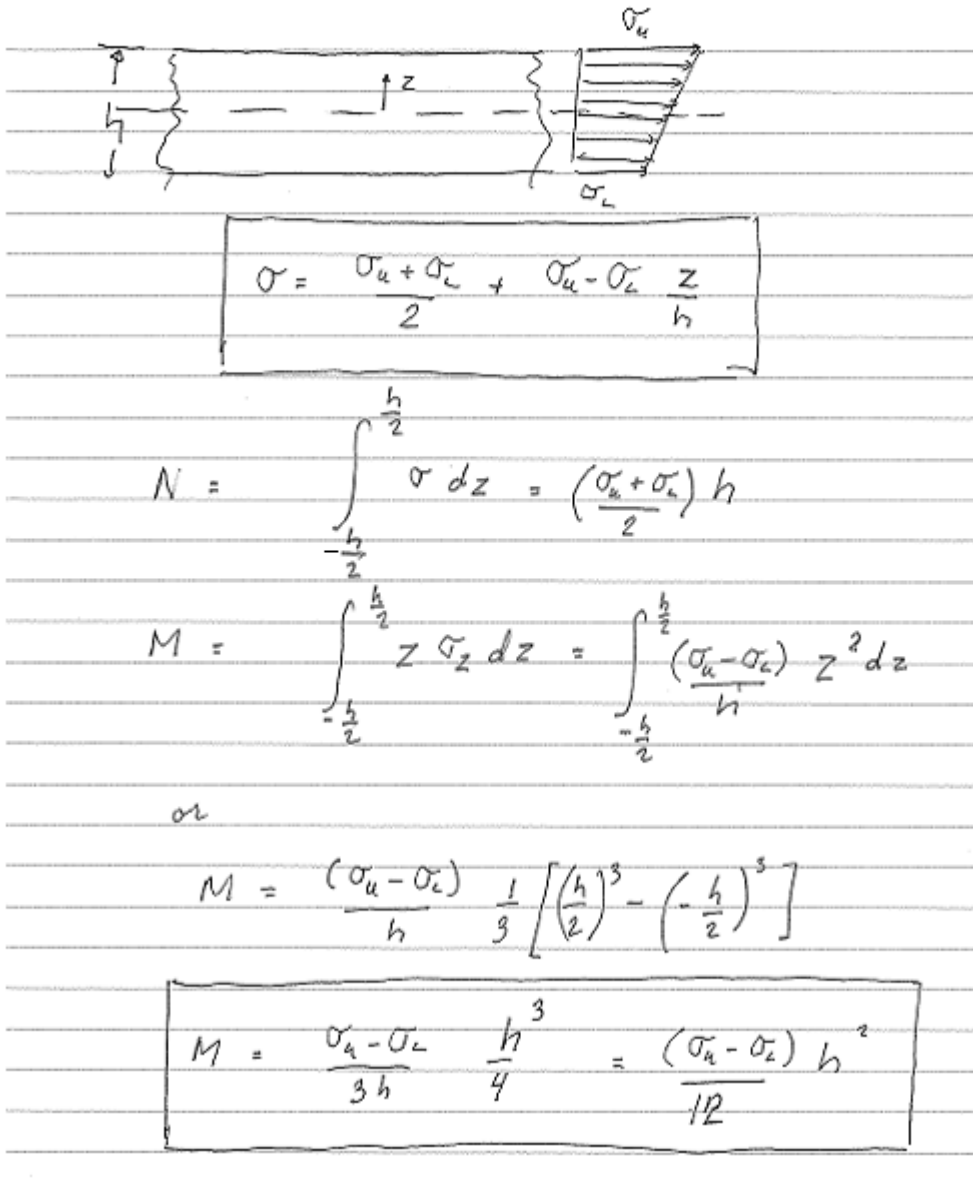 σᵤ
z
h
σ_L
σ = (σᵤ + σ_L)/2 + σᵤ - σ_L z/h
N = ∫_{-h/2}^{h/2} σ dz = ((σᵤ + σ_L)/2) h
M = ∫_{-h/2}^{h/2} z σ_z dz = ∫_{-h/2}^{h/2} (σᵤ - σ_L)/h z² dz
or
M = (σᵤ - σ_L)/h 1/3 [(h/2)³ - (-h/2)³]
M = (σᵤ - σ_L)/3h h³/4 = (σᵤ - σ_L)/12 h²